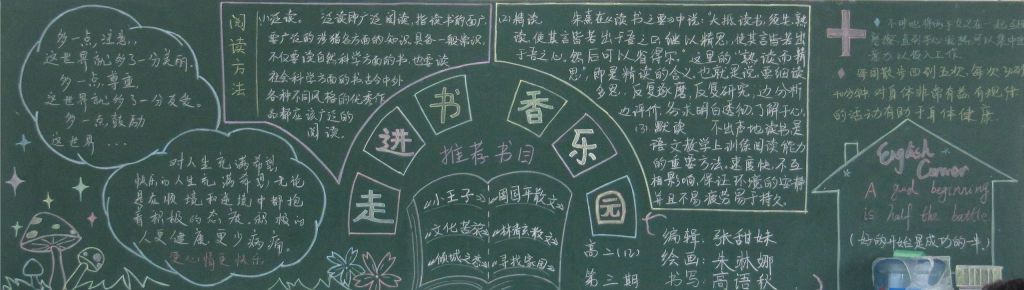 多一点注意，
这世界就多了一分美丽。
多一点尊重
这世界就多了一分友爱。
多一点鼓励
这世界…
对人生充满希望，
快乐的人生充满希望，无论
是在顺境和逆境中都抱
有积极的态度。积极的
人更健康更少病痛，
更心情更快乐
阅读方法
(1)泛读。 泛读即广泛阅读，指读书的面广，
要广泛的涉猎各方面的知识，具备一般常识，
不仅要读自然科学方面的书，也要读
社会科学方面的书，古今中外
各种不同风格的优秀作
品都应该广泛的
阅读。
(2)精读。 朱熹在《读书之要》中说：“大抵读书，须先熟
读，使其言皆若出于吾之口，继以精思，使其言皆若出
于吾之心，然后可以有得尔”这里的“熟读而精
思”，即是精读的含义，也就是说，要细读
多思，反复琢磨，反复研究，边分析
边评价，务求明白透彻，了解于心，
(3)默读 不出声地读书是
语文教学上训练阅读能力
的重要方法。速度快，不互
相影响，保证环境的安静
且不易疲劳易于持久。
走进书香乐园
推荐书目
《小王子》
文化苦旅
《倾城之恋》
周国平散文
《林清玄散文》
《寻找家园》
高二(12)
第三期
编辑：张甜妹
绘画：朱琳娜
书写：高语秋
每周散步四到五次，每次30到
40分钟，对身体非常有益，有规律
的活动有助于身体健康
English
Corner
A good beginning
is half the battle
(好的开始是成功的一半)